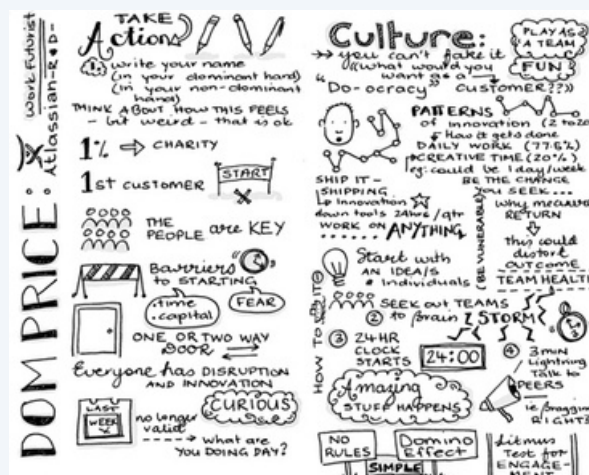 DOM PRICE:
Work Futurist
Atlassian-R+D-
TAKE
Action
1. write your name
(in your dominant hand)
(in your non-dominant
hand)
THINK ABOUT HOW THIS FEELS
- bit weird - that is ok
1% → CHARITY
1st customer
START
THE
PEOPLE are KEY
Barriers
to STARTING
.time
.capital
FEAR
ONE OR TWO WAY
DOOR
Everyone has DISRUPTION
AND INNOVATION
CURIOUS
LAST
WEEK
no longer
valid
→ what are
YOU DOING DAY?
Culture:
PLAY AS
A TEAM
FUN
→ you can't fake it
"what would you
want as a
customer??"
"Do-ocracy"
PATTERNS
of innovation (2 to20
↳ How it gets done
DAILY WORK (77.5%)
CREATIVE TIME (20%)
eg: could be 1 day/week
BE THE CHANGE
YOU SEEK...
SHIP IT-
SHIPPING
↳ Innovation
down tools 24hrs/qtr
WORK ON ANYTHING
(BE VULNERABLE)
Why measure
RETURN
this could
distort
OUTCOME
TEAM HEALTH
HOW TO DO IT
Start with
AN IDEA/S
• Individuals
SEEK out TEAMS
② to brain STORM
③ 24HR
CLOCK
STARTS
24:00
④ 3min
Lightning
Talk to
PEERS
ie bragging
RIGHTS
Amazing
STUFF HAPPENS
NO
RULES
Domino
Effect
SIMPLE
Litmus
Test for
ENGAGE-
MENT